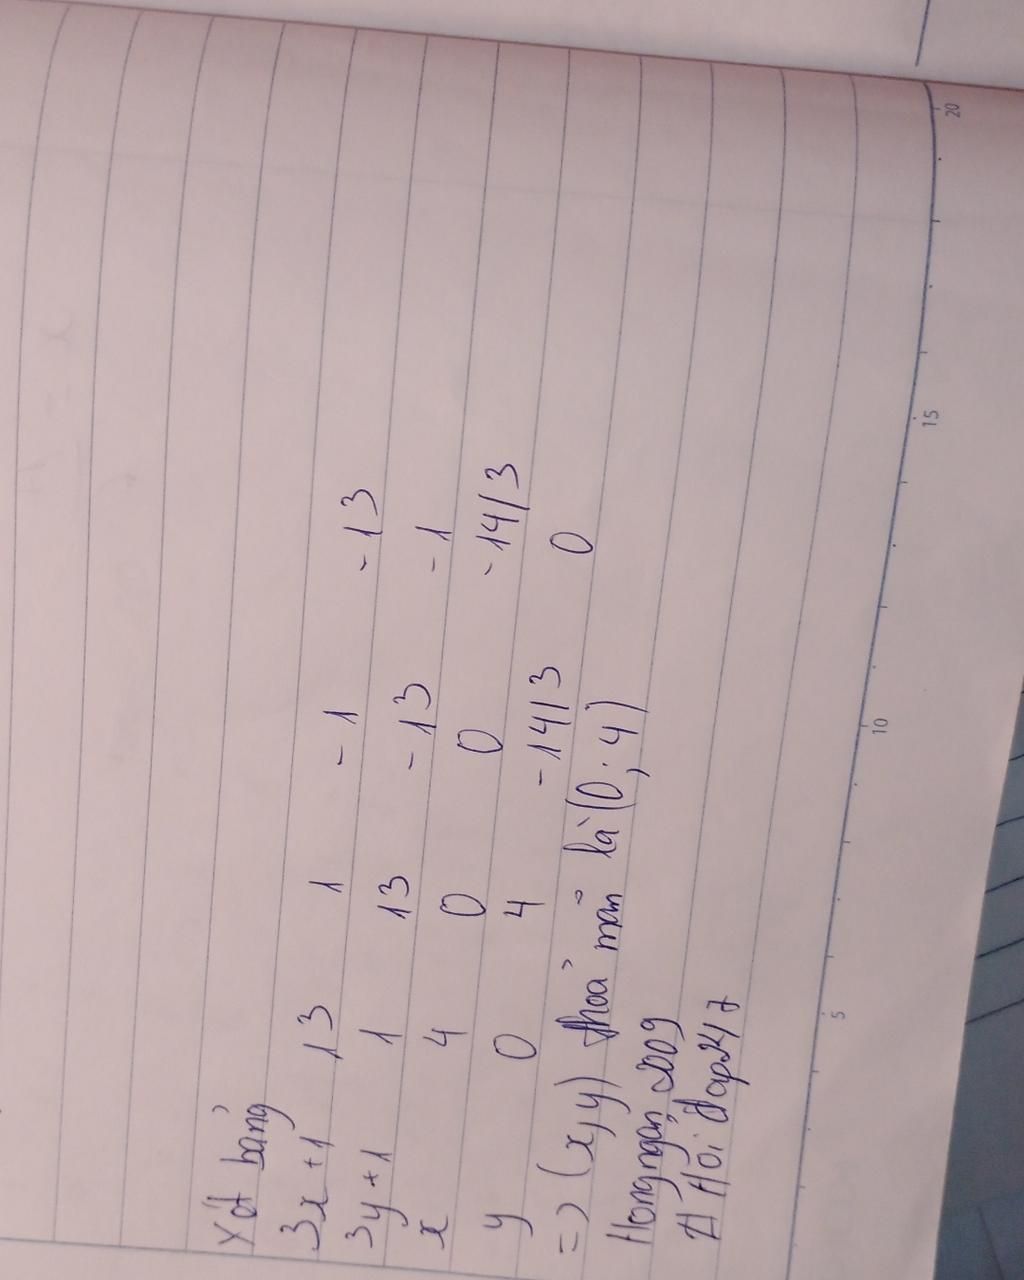 Xét bảng
3x+1 13 1 -1 -13
3y+1 1 13 -13 -1
x 4 0 0 -14/3
y 0 4 -14/3 0
=> (x,y) thoả mãn là (0;4)
Hongngan2009
Hỏi đáp247
5 10 15 20